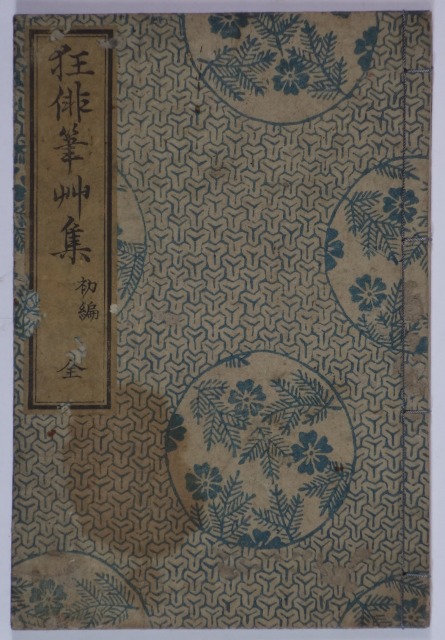 狂俳筆艸集
初編
全